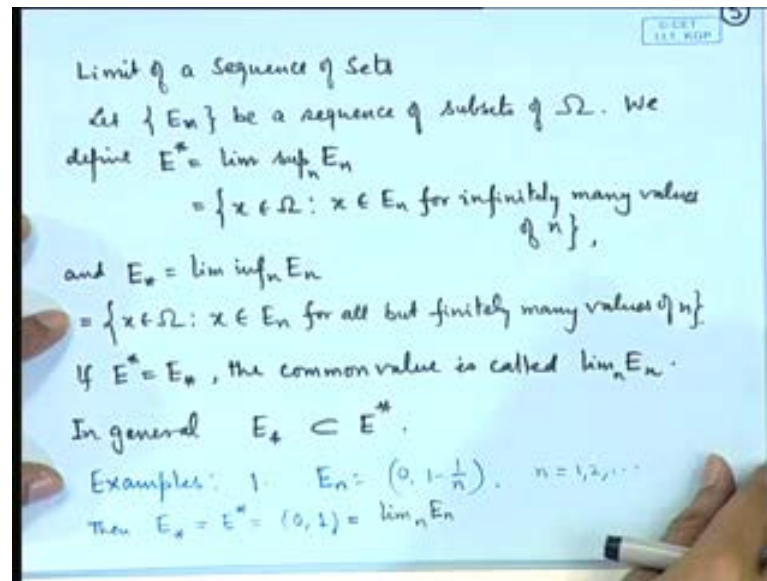 5
C-CET
I.I.T. KGP
Limit of a Sequence of Sets
Let {En} be a sequence of subsets of Ω. We
define E* = lim supn En
= {x ∈ Ω : x ∈ En for infinitely many values
of n},
and E* = lim infn En
= {x ∈ Ω : x ∈ En for all but finitely many values of n}
If E* = E*, the common value is called limn En.
In general E* ⊂ E*.
Examples: 1. En = (0, 1-1/n), n = 1,2,...
Then E* = E* = (0,1) = limn En